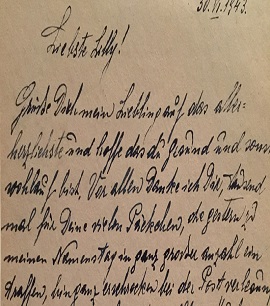 30.VI.1943.
Liebste Lilly!
Grüße Dich mein Liebling auf das aller=
herzlichste und hoffe das du gesund und sonst
wohlauf bist. Vor allen Danke ich Dir, tausend
mal für Deine vielen Päckchen, die gestern zu
meinen Namenstag in ganz großer anzahl ein
traffen, bin ganz erschrocken bei der Post